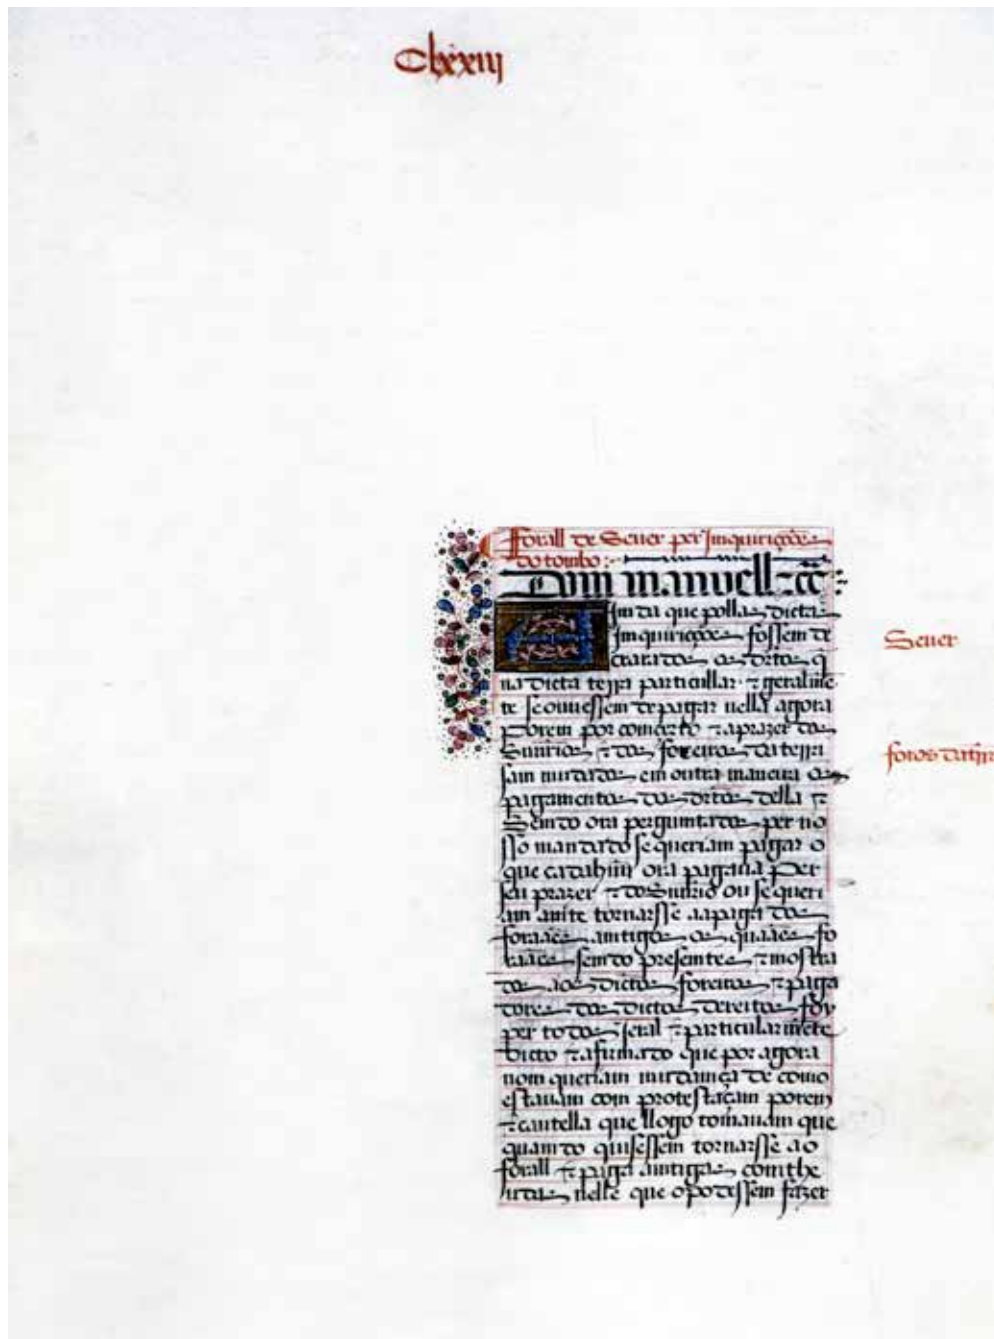 Clxxiij
forall de Seuer per Jmquiriçoões
do tombo
Dom manuell ⁊cᵃ
Aimda que polla dicta
Jmquiriçooes fossem de
crarados os drtos q̃
na dicta terra particullar ⁊ geralmẽ
te se ouuessem de pagar nella agora
Porem por comcerto ⁊ aprazer dos
Snñrios ⁊ dos foreiros da terra
sam mudados em outra maneira os
pagamentos dos drtos della ⁊
Semdo ora perguntados per no
sso mandado se queriam pagar o
que cadahũu ora pagaua Per
seu prazer ⁊ do Snñrio ou se queri
am amte tornarsse aa paga dos
foraães amtigos os quaaes fo
raães semdo presemtes ⁊ mostra
dos aos dictos foreiros ⁊ paga
dores dos dictos dereitos foy
per todos jeral ⁊ particularmẽte
dicto ⁊ afirmado que por agora
nom queriam mudamça de como
estauam com protestaçam porem
⁊ cautella que llogo tomauam que
quamdo quisessem tornarsse ao
forall ⁊ paga amtigas comthe
udas nelle que o podessem fazer
Seuer
foros da trra